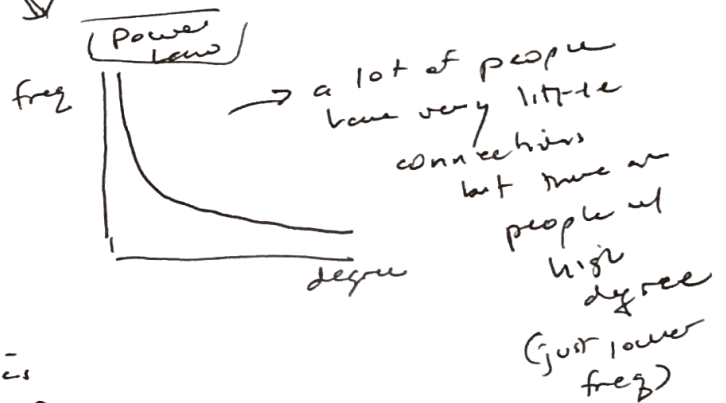 Power
Law
freq
a lot of people
have very little
connections
but there are
people w/
high
degree
(just lower
freq)
degree